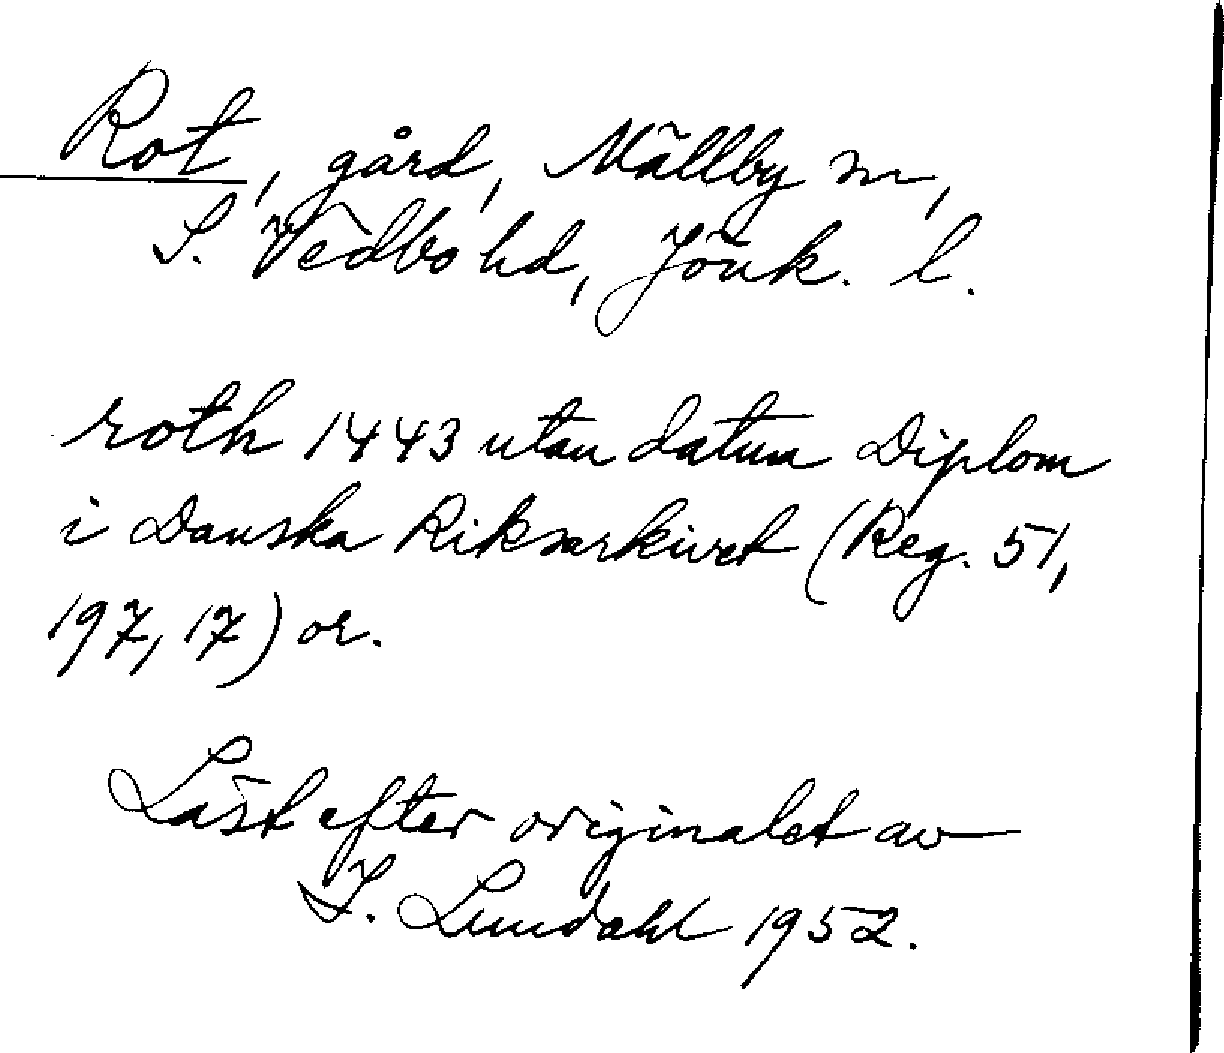 Rot, gård, Mällby sn,
S. Vedbo hd, Jönk. l.
roth 1443 utan datum Diplom
i Danska Riksarkivet (Reg. 51,
197, 17) or.
Läst efter originalet av
I. Lundahl 1952.